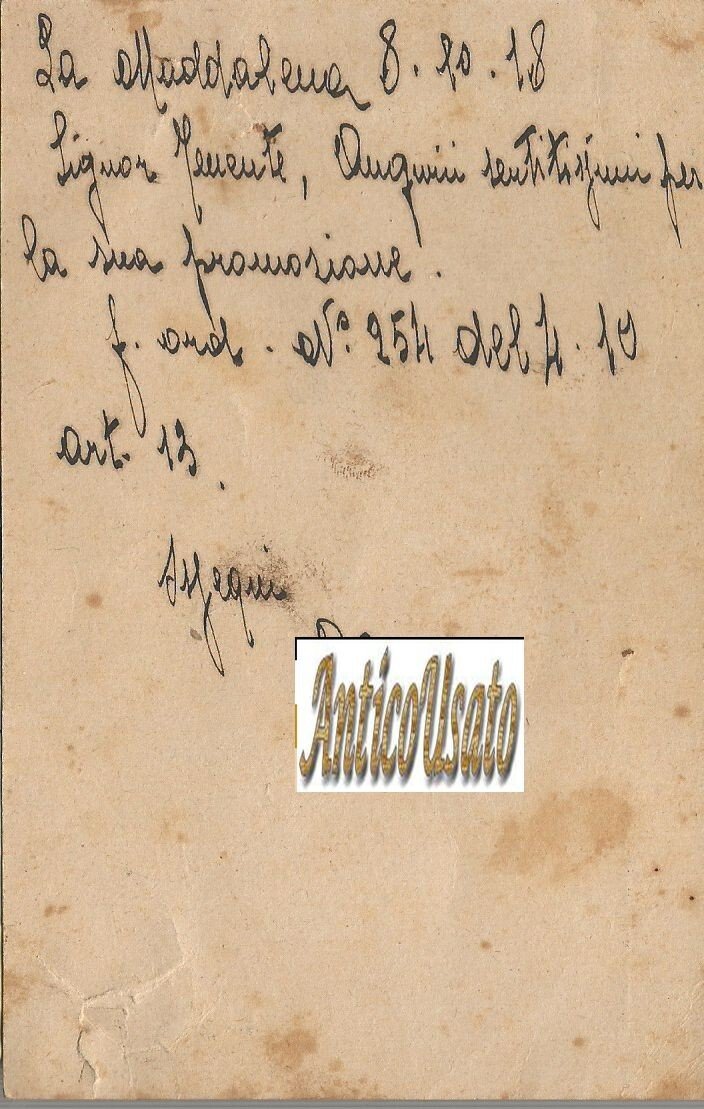 La Maddalena 8.10.18
Signor Tenente, Augurii sentitissimi per
la sua promozione.
f. ord. N° 254 del 4.10
art. 13.
Ossequi
AnticoUsato